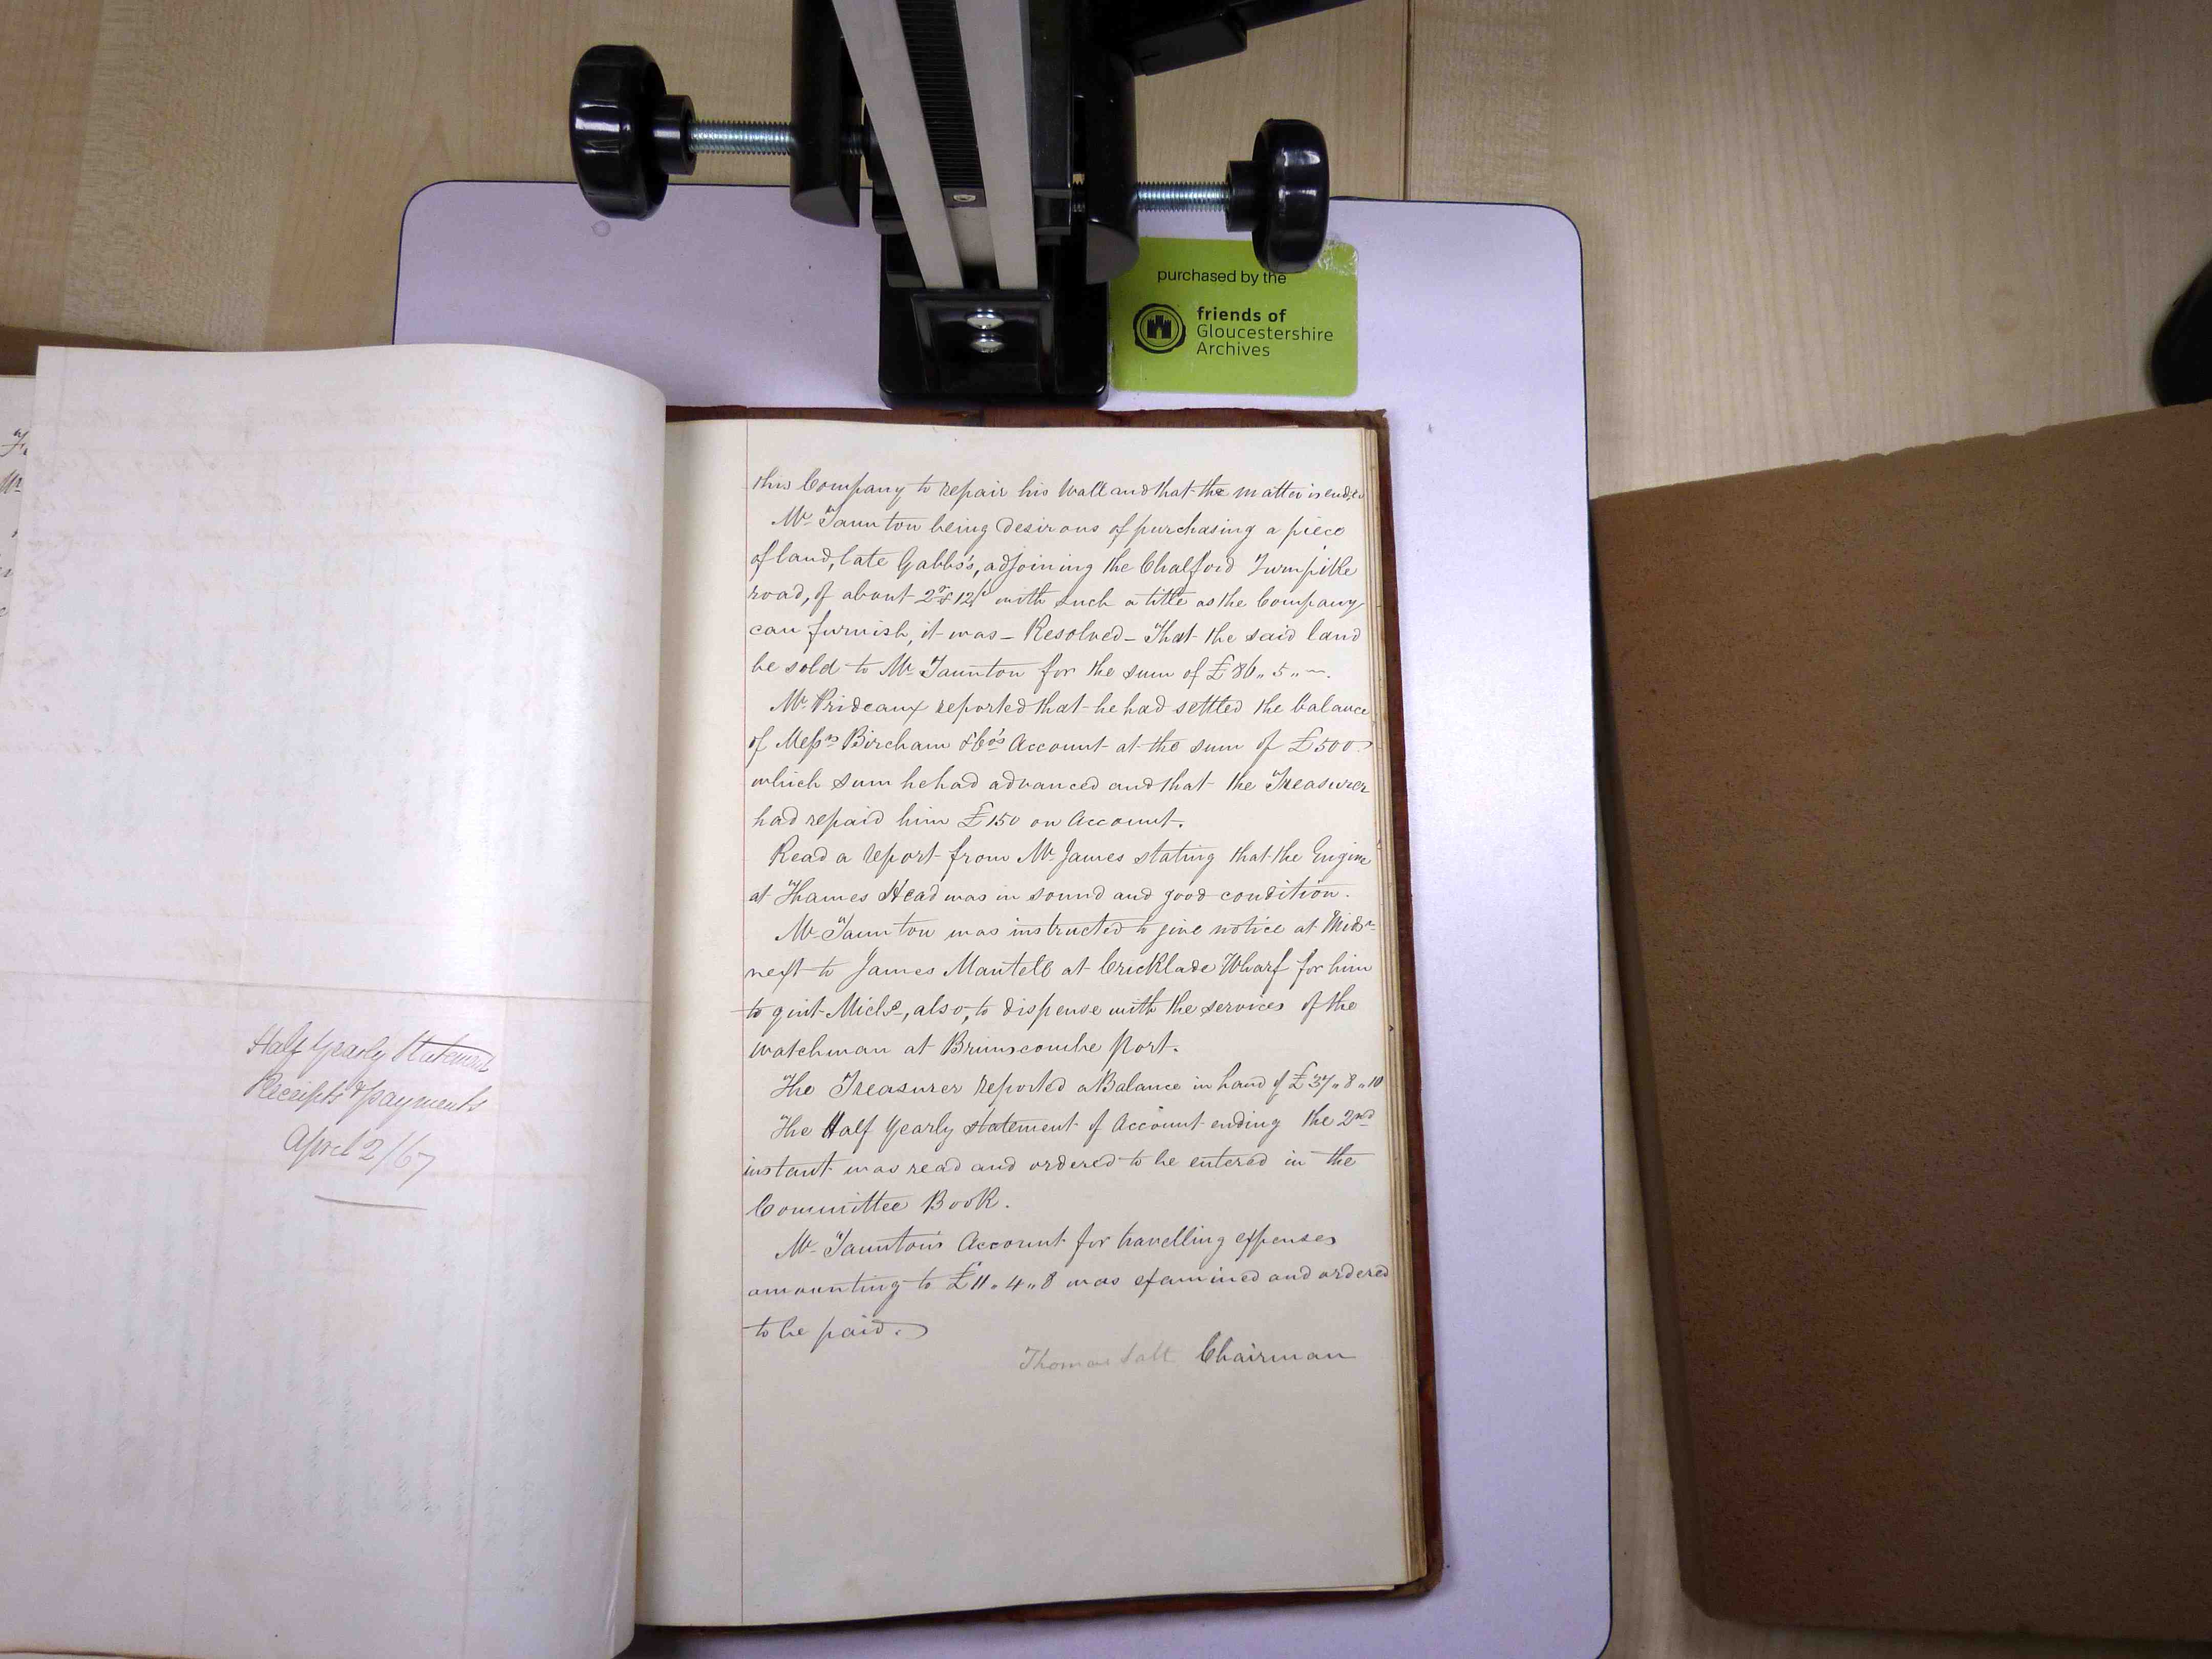 purchased by the
friends of
Gloucestershire
Archives
this Company to repair his Wall and that the matter is ended
Mr Taunton being desirous of purchasing a piece
of land, late Gabb's, adjoining the Chalford Turnpike
road, of about 2r & 12p with such a title as the Company
can furnish, it was – Resolved – That the said land
be sold to Mr Taunton for the sum of £86 „ 5 „ ~.
Mr Prideaux reported that he had settled the balance
of Messrs Bircham & Co's Account at the sum of £500
which sum he had advanced and that the Treasurer
had repaid him £150 on Account.
Read a report from Mr James stating that the Engine
at Thames Head was in sound and good condition.
Mr Taunton was instructed to give notice at Midsr
next to James Mantell at Cricklade Wharf for him
to quit Michs, also, to dispense with the services of the
Watchman at Brimscombe Port.
The Treasurer reported a Balance in hand of £37 „ 8 „ 10
The Half Yearly statement of Account ending the 2nd
instant was read and ordered to be entered in the
Committee Book.
Mr Taunton's Account for travelling expenses
amounting to £11 „ 4 „ 8 was examined and ordered
to be paid.
Thomas Salt Chairman
Half Yearly Statement
Receipts & payments
April 2/67